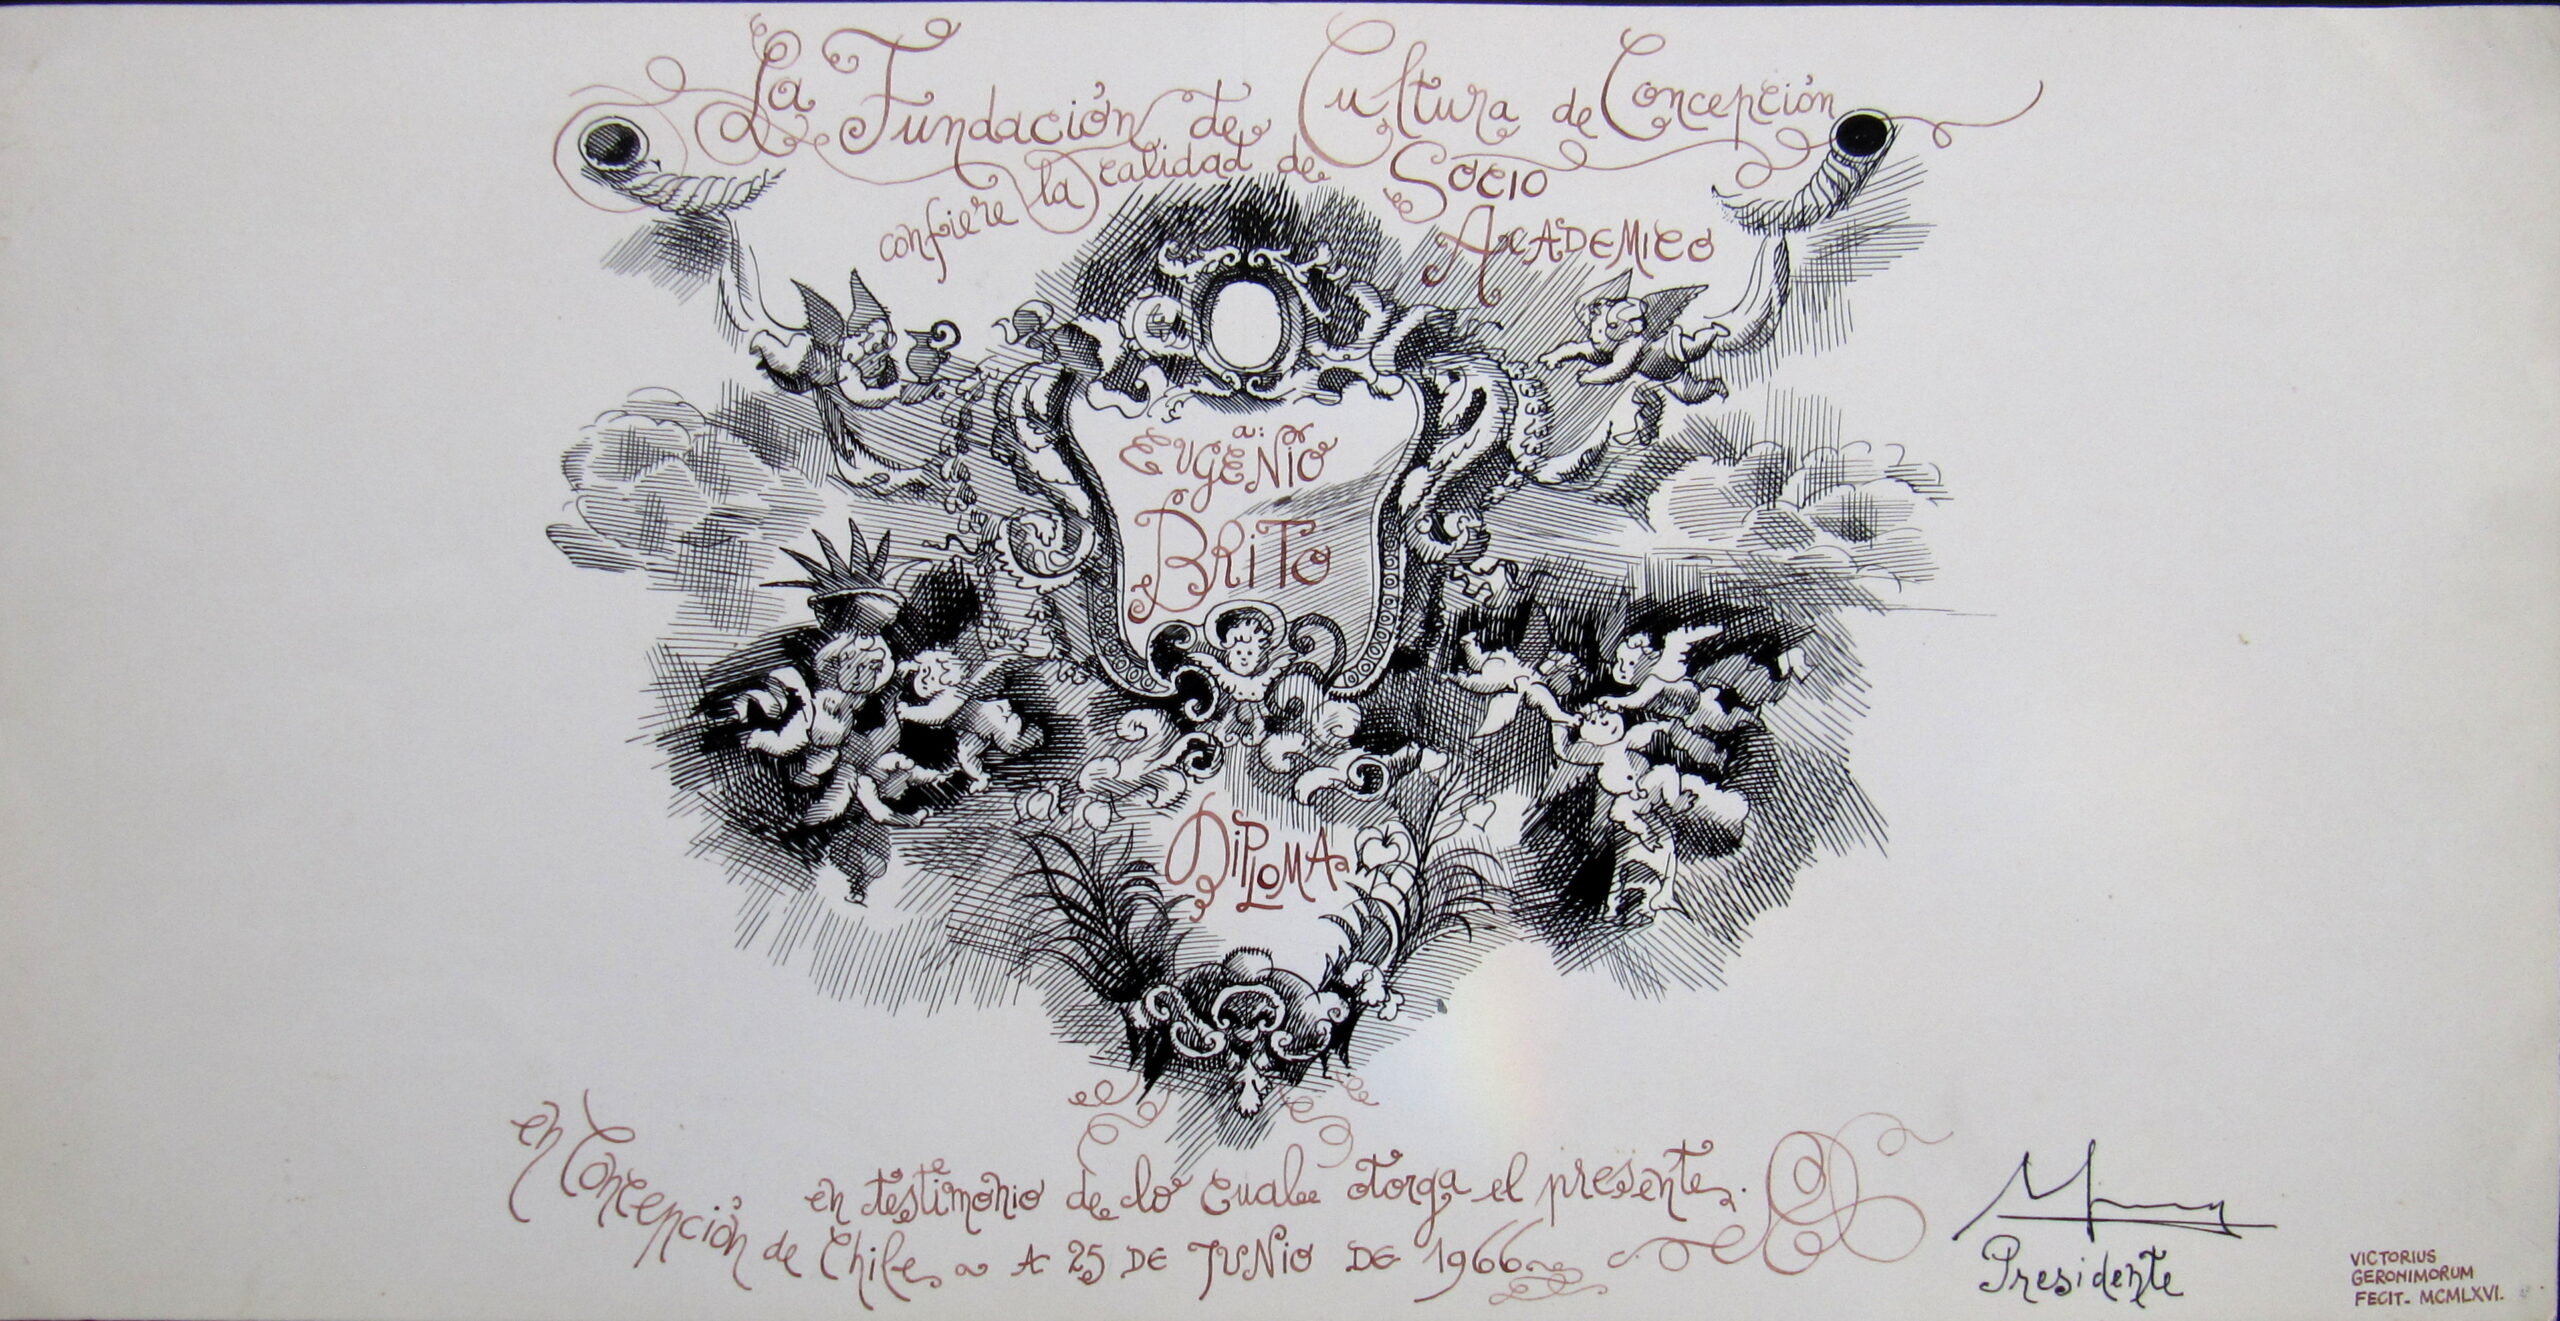 La Fundación de Cultura de Concepción
confiere la calidad de Socio
Academico
a:
Eugenio
Brito
Diploma
en testimonio de lo cual otorga el presente.
en Concepción de Chile A 25 DE JUNIO DE 1966
Presidente
VICTORIUS
GERONIMORUM
FECIT- MCMLXVI.